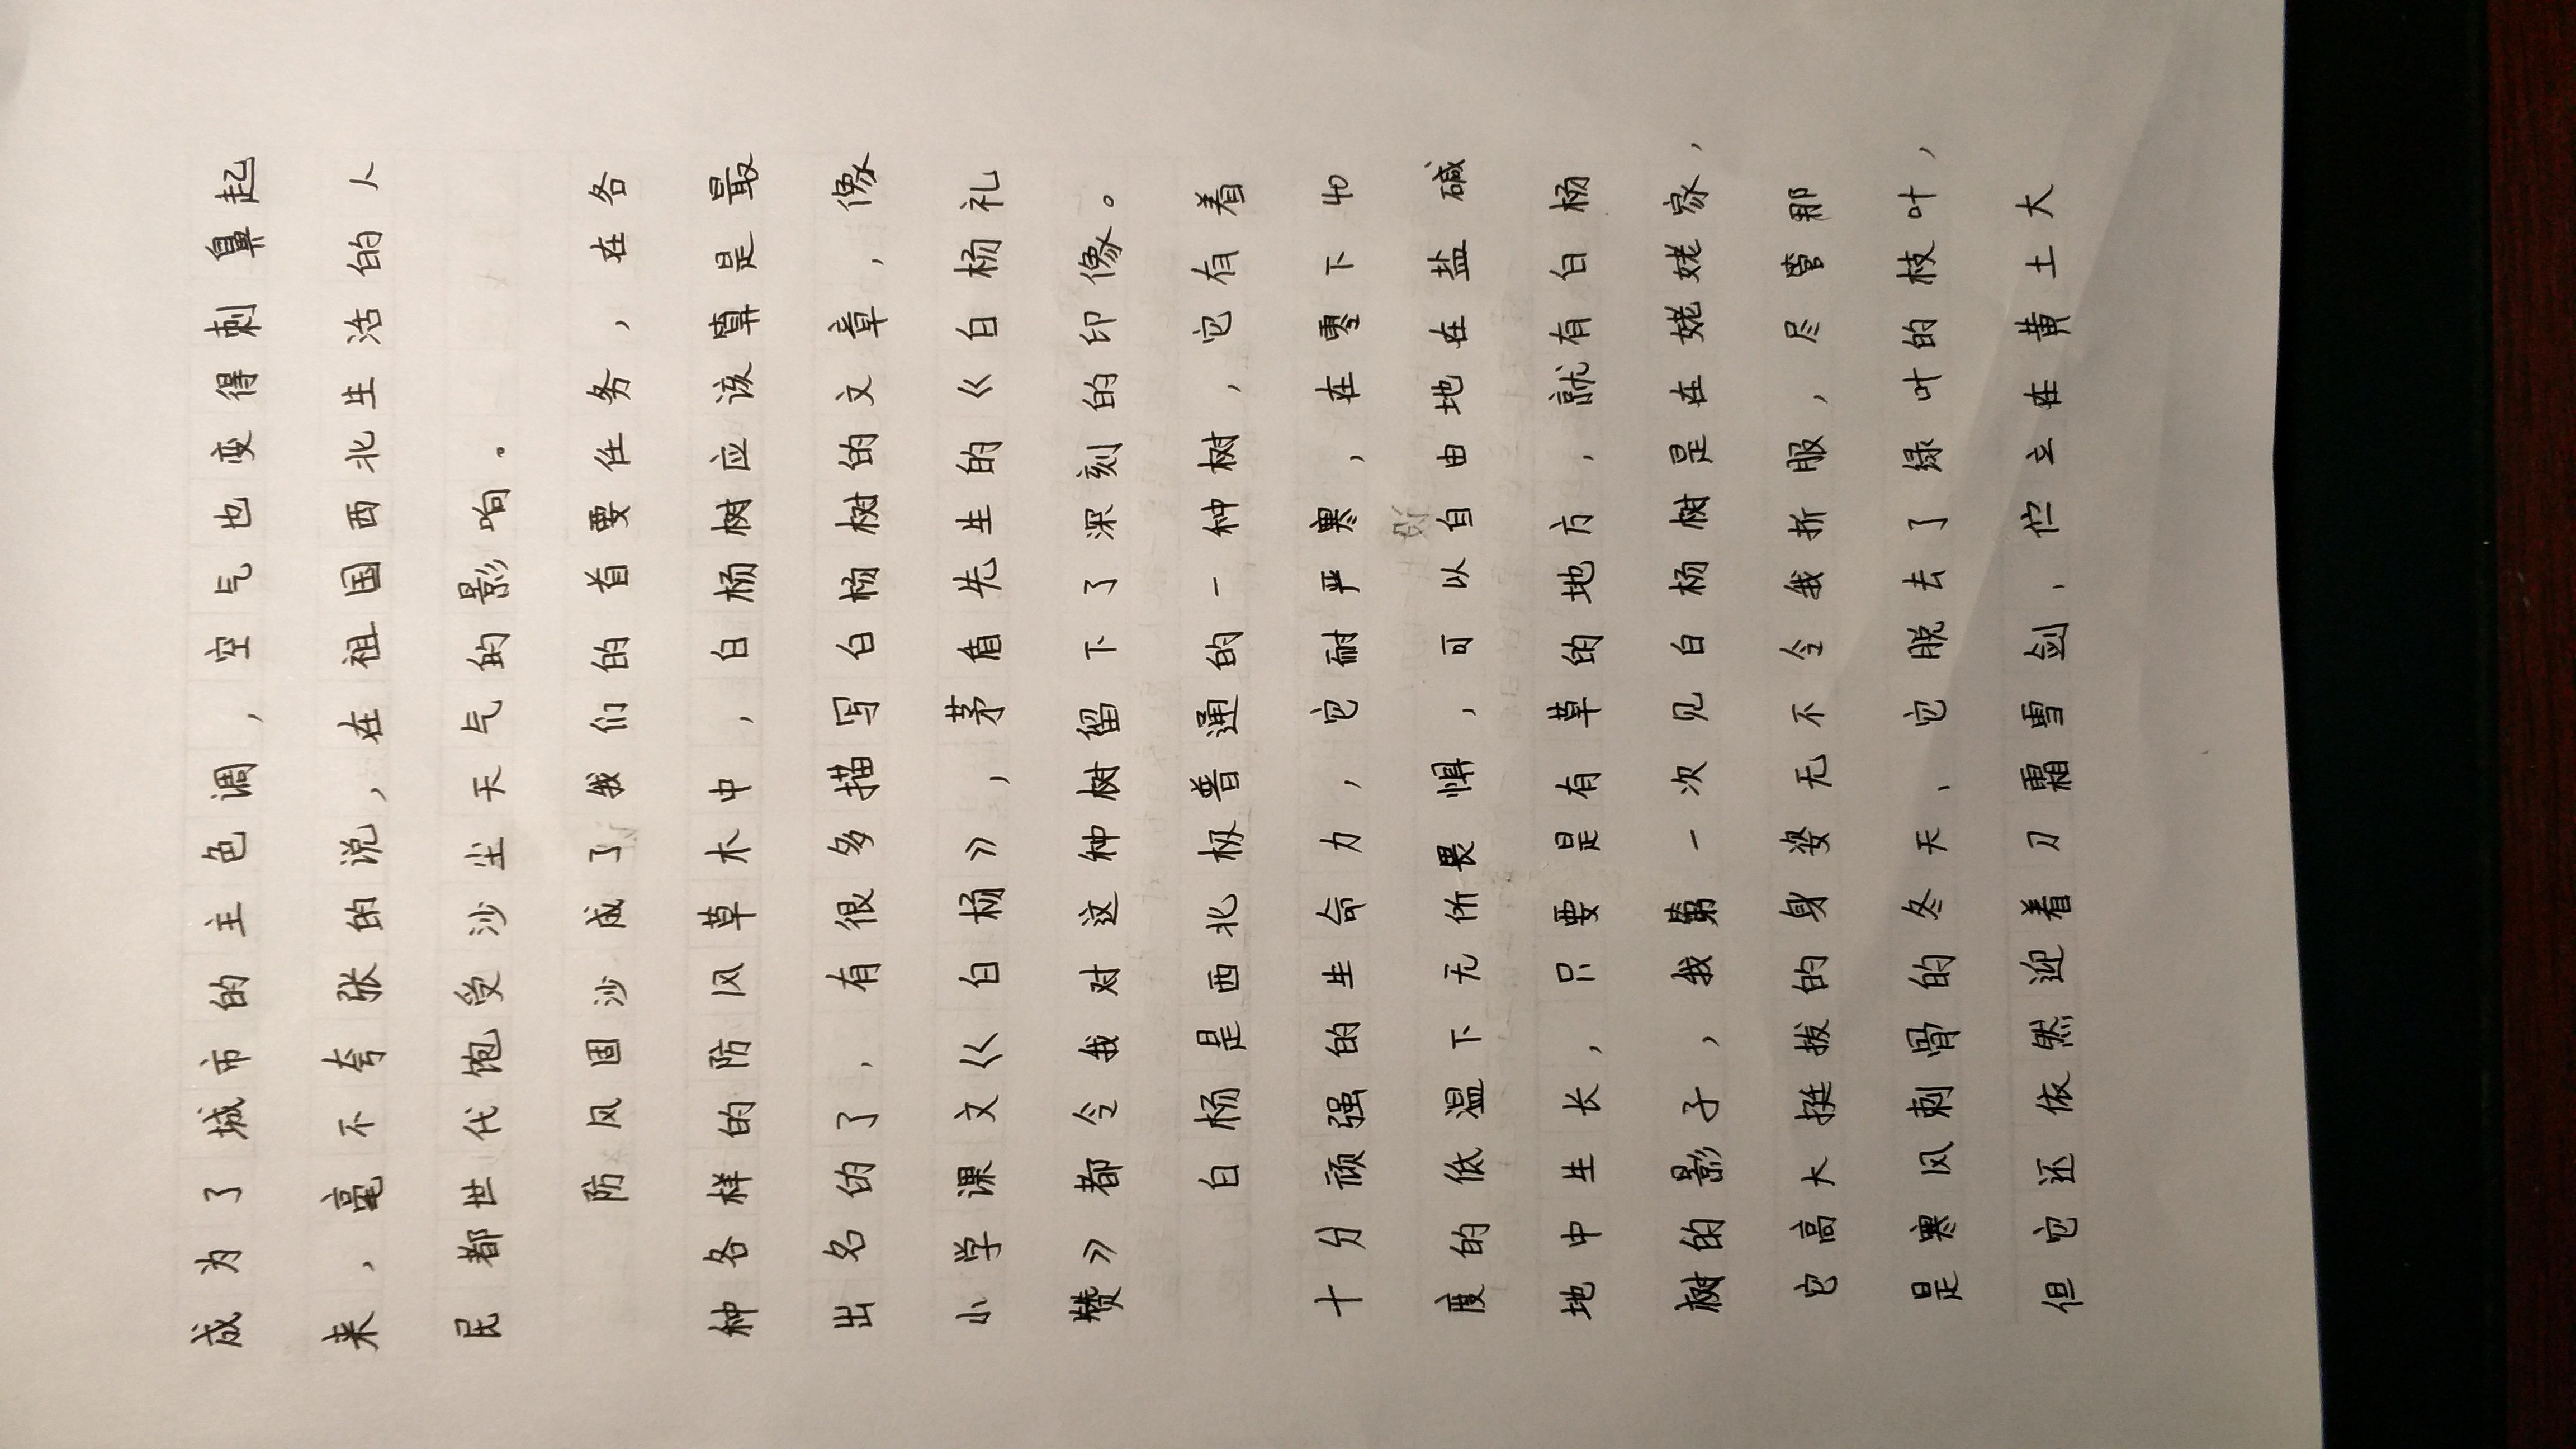 成为了城市的主色调，空气也变得刺鼻起
来，毫不夸张的说，在祖国西北生活的人
民都世代饱受沙尘天气的影响。
防风固沙成了我们的首要任务，在各
种各样的防风草木中，白杨树应该算是最
出名的了，有很多描写白杨树的文章，像
小学课文《白杨》，茅盾先生的《白杨礼
赞》都令我对这种树留下了深刻的印像。
白杨是西北极普通的一种树，它有着
十分顽强的生命力，它耐严寒，在零下40
度的低温下无所畏惧，可以自由地在盐碱
地中生长，只要是有草的地方，就有白杨
树的影子，我第一次见白杨树是在姥姥家，
它高大挺拔的身姿无不令我折服，尽管那
是寒风刺骨的冬天、它脱去了绿叶的枝叶，
但它还依然迎着刀霜雪剑、伫立在黄土大